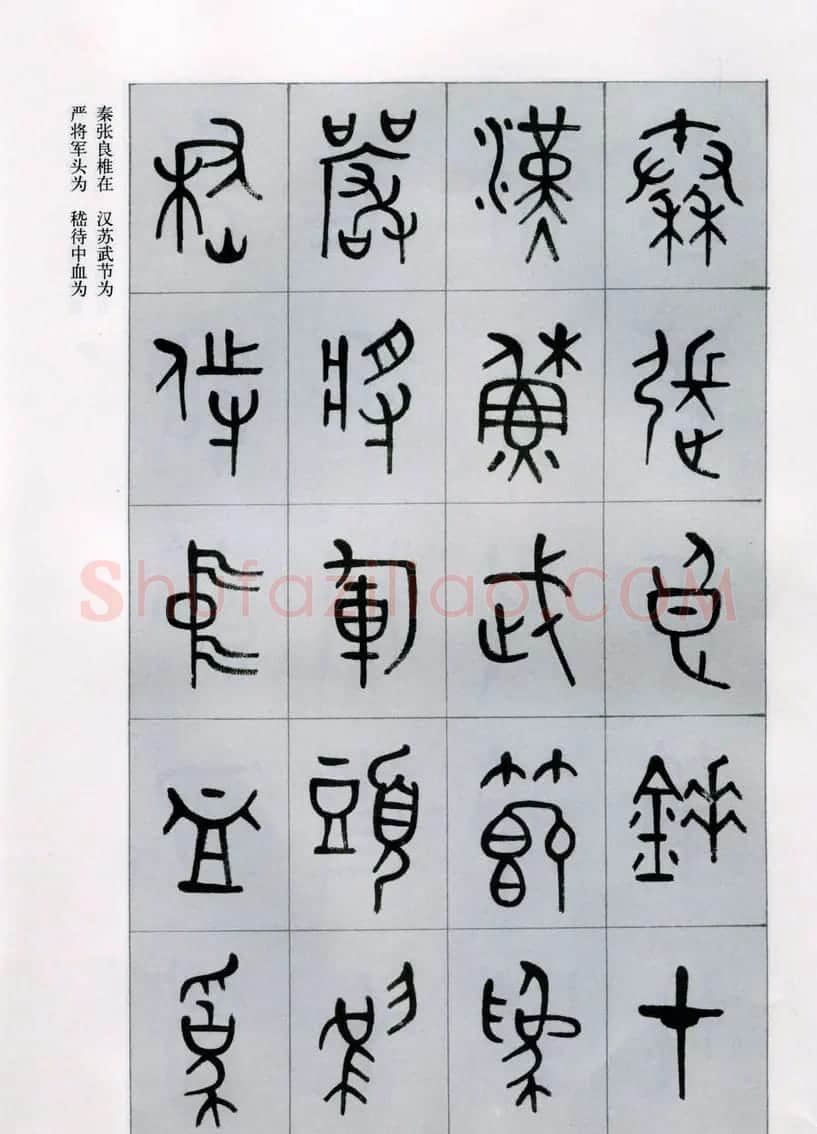 秦張良錘在
漢蘇武節為
嚴將軍頭為
嵇侍中血為
秦张良椎在 汉苏武节为
严将军头为 嵇待中血为
Shufaziliao.COM